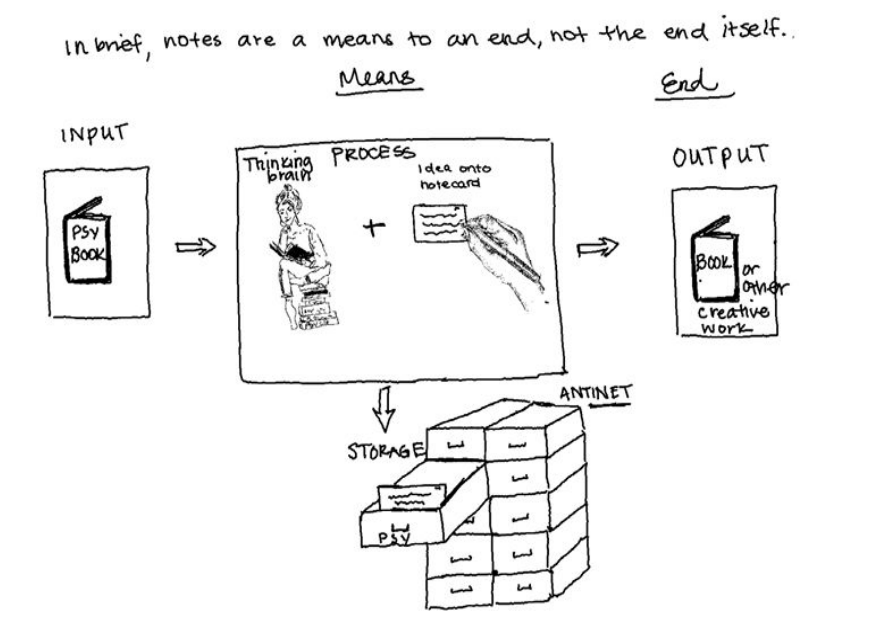 In brief, notes are a means to an end, not the end itself..
Means
End
INPUT
PSY
BOOK
PROCESS
Thinking
brain
+
Idea onto
notecard
OUTPUT
BOOK
or
other
creative
work
STORAGE
ANTINET
PSY